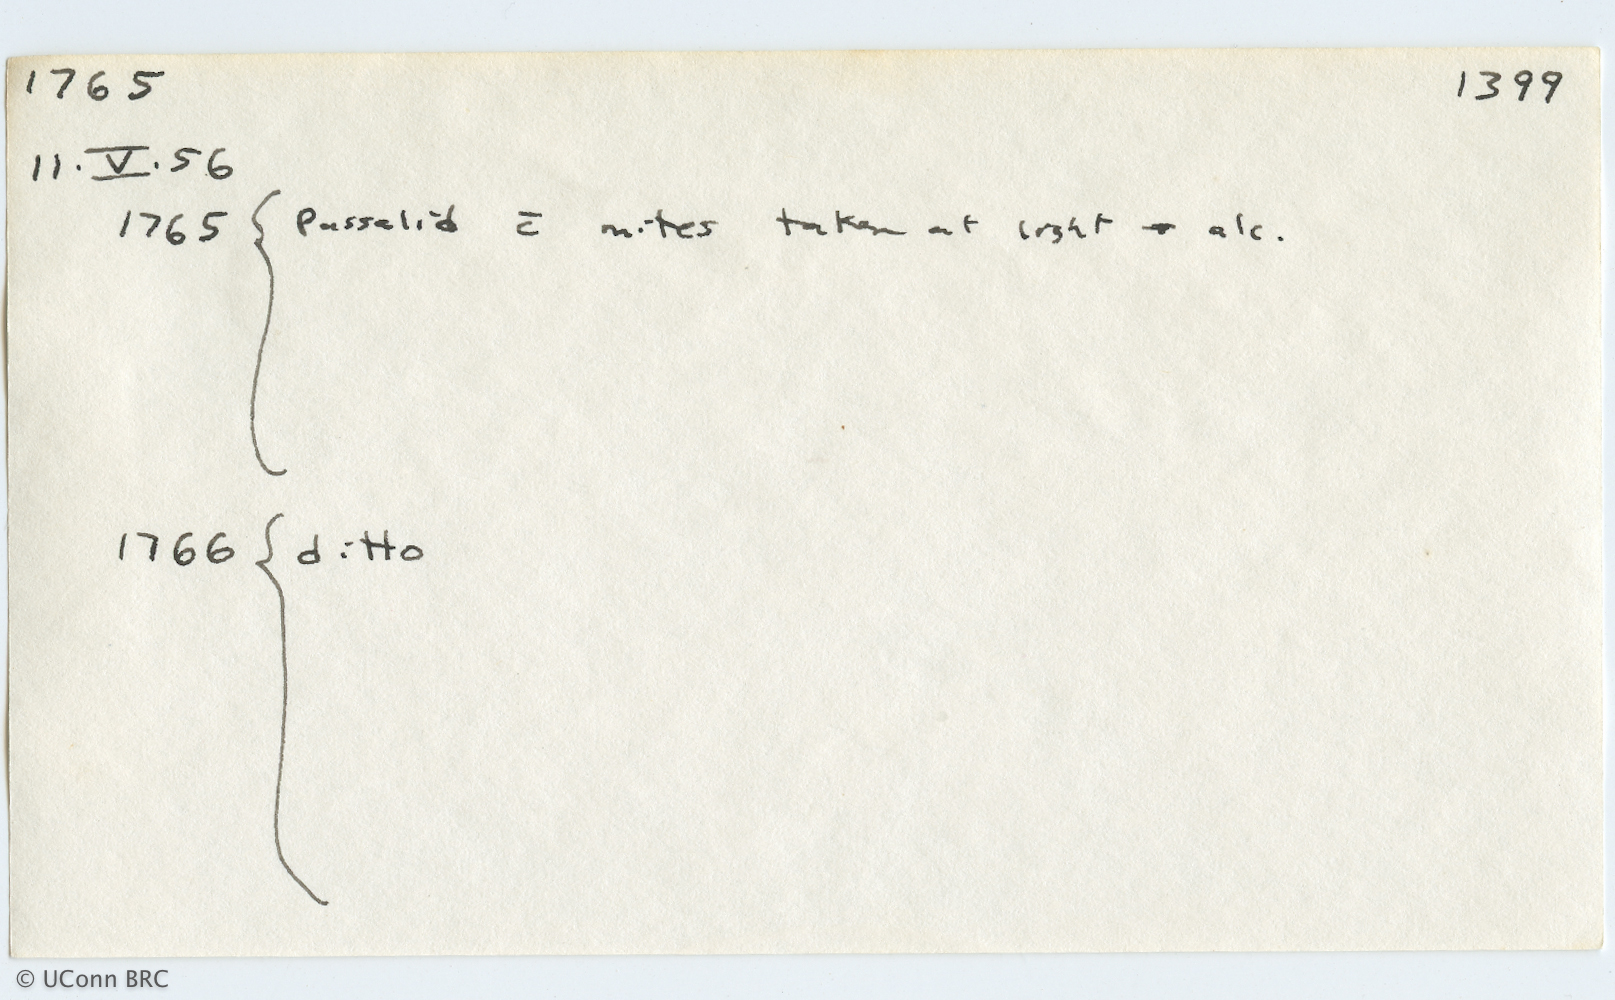 1765 1399
11.V.56
1765 { Passalid c̄ mites taken at light → alc.
1766 { ditto
© UConn BRC